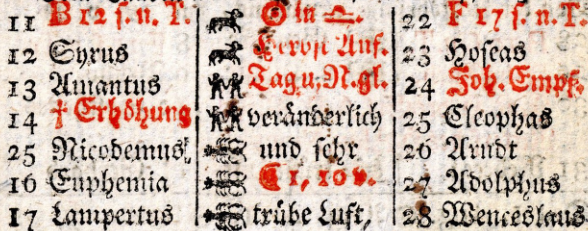 11 B 12 s. n. T. ☉ in ♎. 22 F 17 s. n. T
12 Syrus Auf. 23 Hoseas
13 Amantus Tag u. N. gl. 24 Joh. Empf.
14 † Erhöhung veränderlich 25 Cleophas
25 Nicodemus und sehr 26 Arndt
16 Euphemia 1, 10 v. 27 Adolphus
17 Lampertus trübe Luft, 28 Wenceslaus